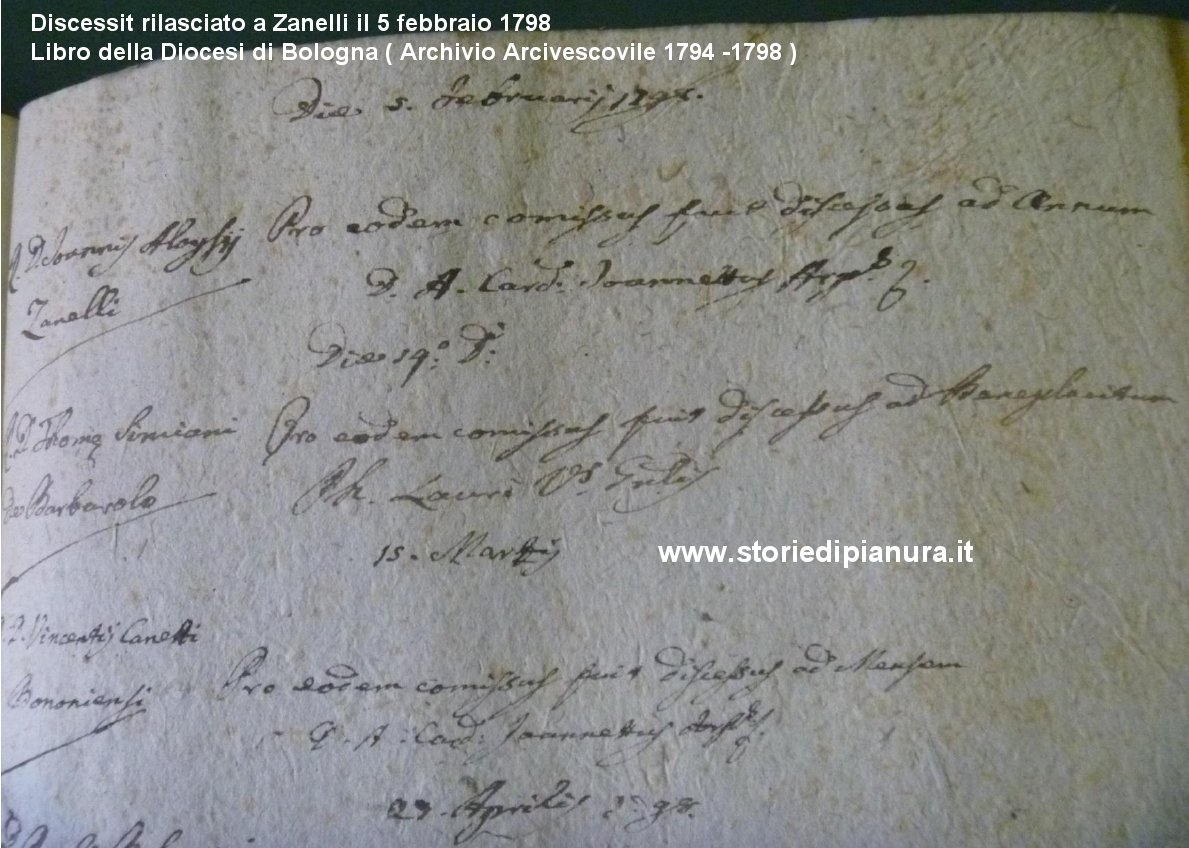 Discessit rilasciato a Zanelli il 5 febbraio 1798
Libro della Diocesi di Bologna ( Archivio Arcivescovile 1794 -1798 )
Die 5. Februarij 1798.
R. D. Joannis Aloysij
Zanelli
Pro eodem comissus fuit discessus ad Annum
A. Card. Joannettus Arp.
Die 19.° D.
Thomæ Simiani
de Barbarolo
Pro eodem comissus fuit discessus ad Beneplacitum
Ph. Lauri
15. Martij
D. Vincentij Canetti
Bononiensi
Pro eodem comissus fuit discessus ad Mensem
A. Card. Joannettus
23. Aprilis
www.storiedipianura.it